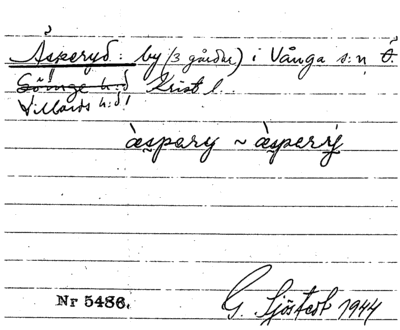 Åsperyd: by (3 gårdar) i Vånga s:n Ö.
Göinge h:d Krist l.
Villands h:d!
àspary ~ àsperý
Nr 5486.
G. Sjöstedt 1944